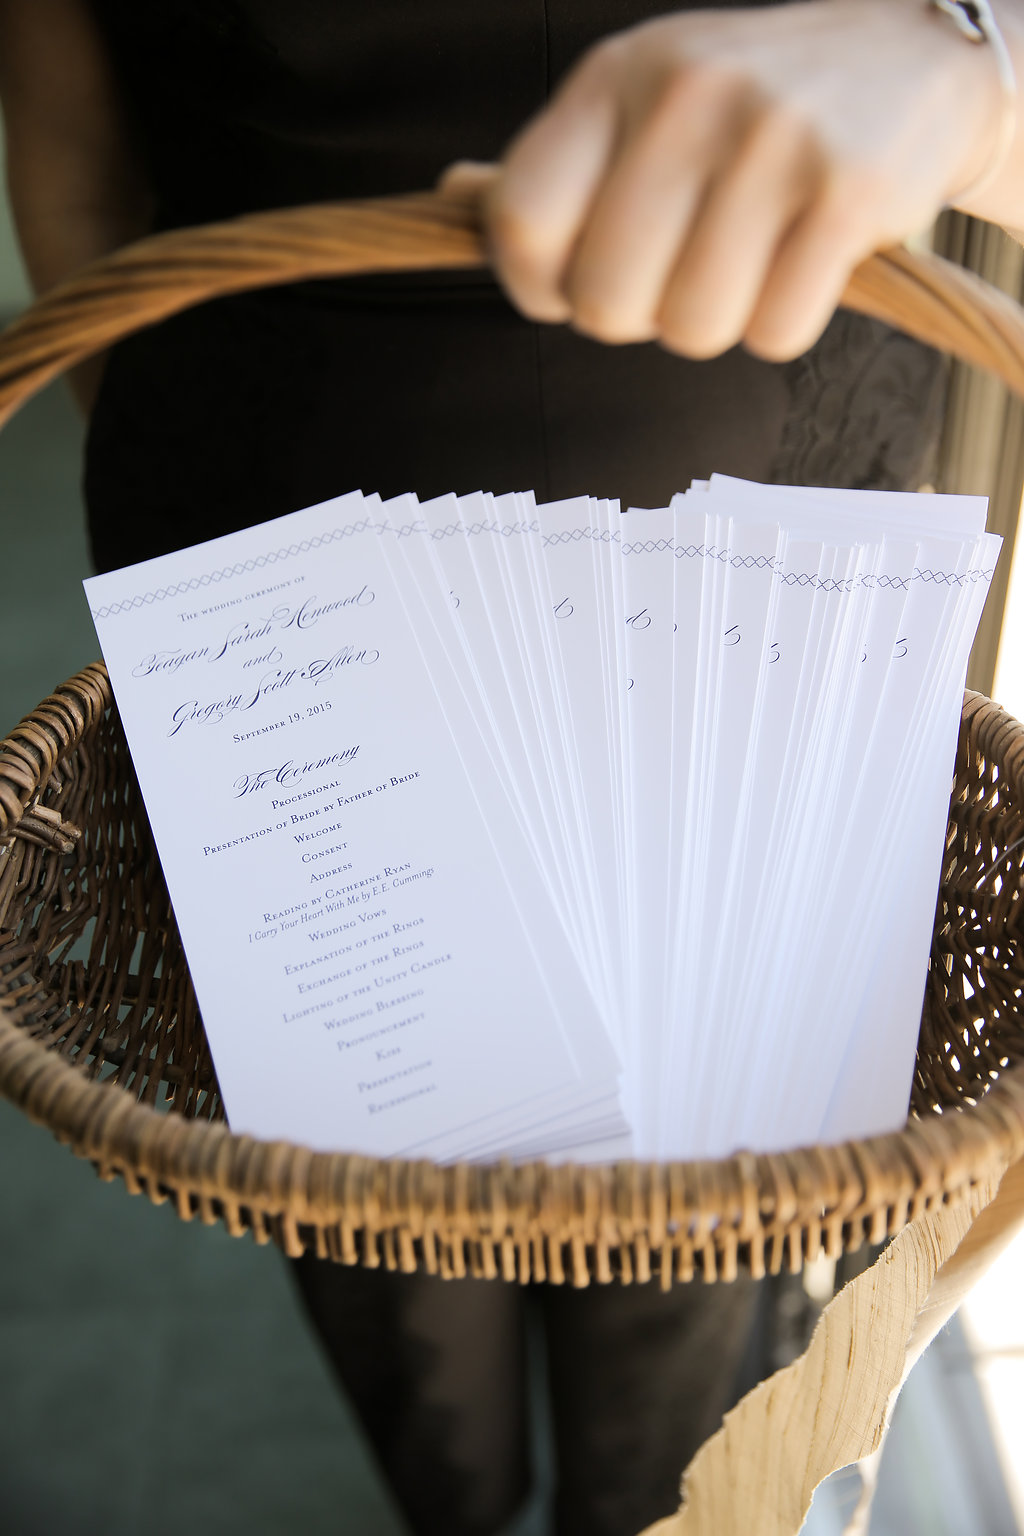 The wedding ceremony of
Teagan Sarah Henwood
and
Gregory Scott Allen
September 19, 2015
The Ceremony
Processional
Presentation of Bride by Father of Bride
Welcome
Consent
Address
Reading by Catherine Ryan
I Carry Your Heart With Me by E.E. Cummings
Wedding Vows
Explanation of the Rings
Exchange of the Rings
Lighting of the Unity Candle
Wedding Blessing
Pronouncement
Kiss
Presentation
Recessional